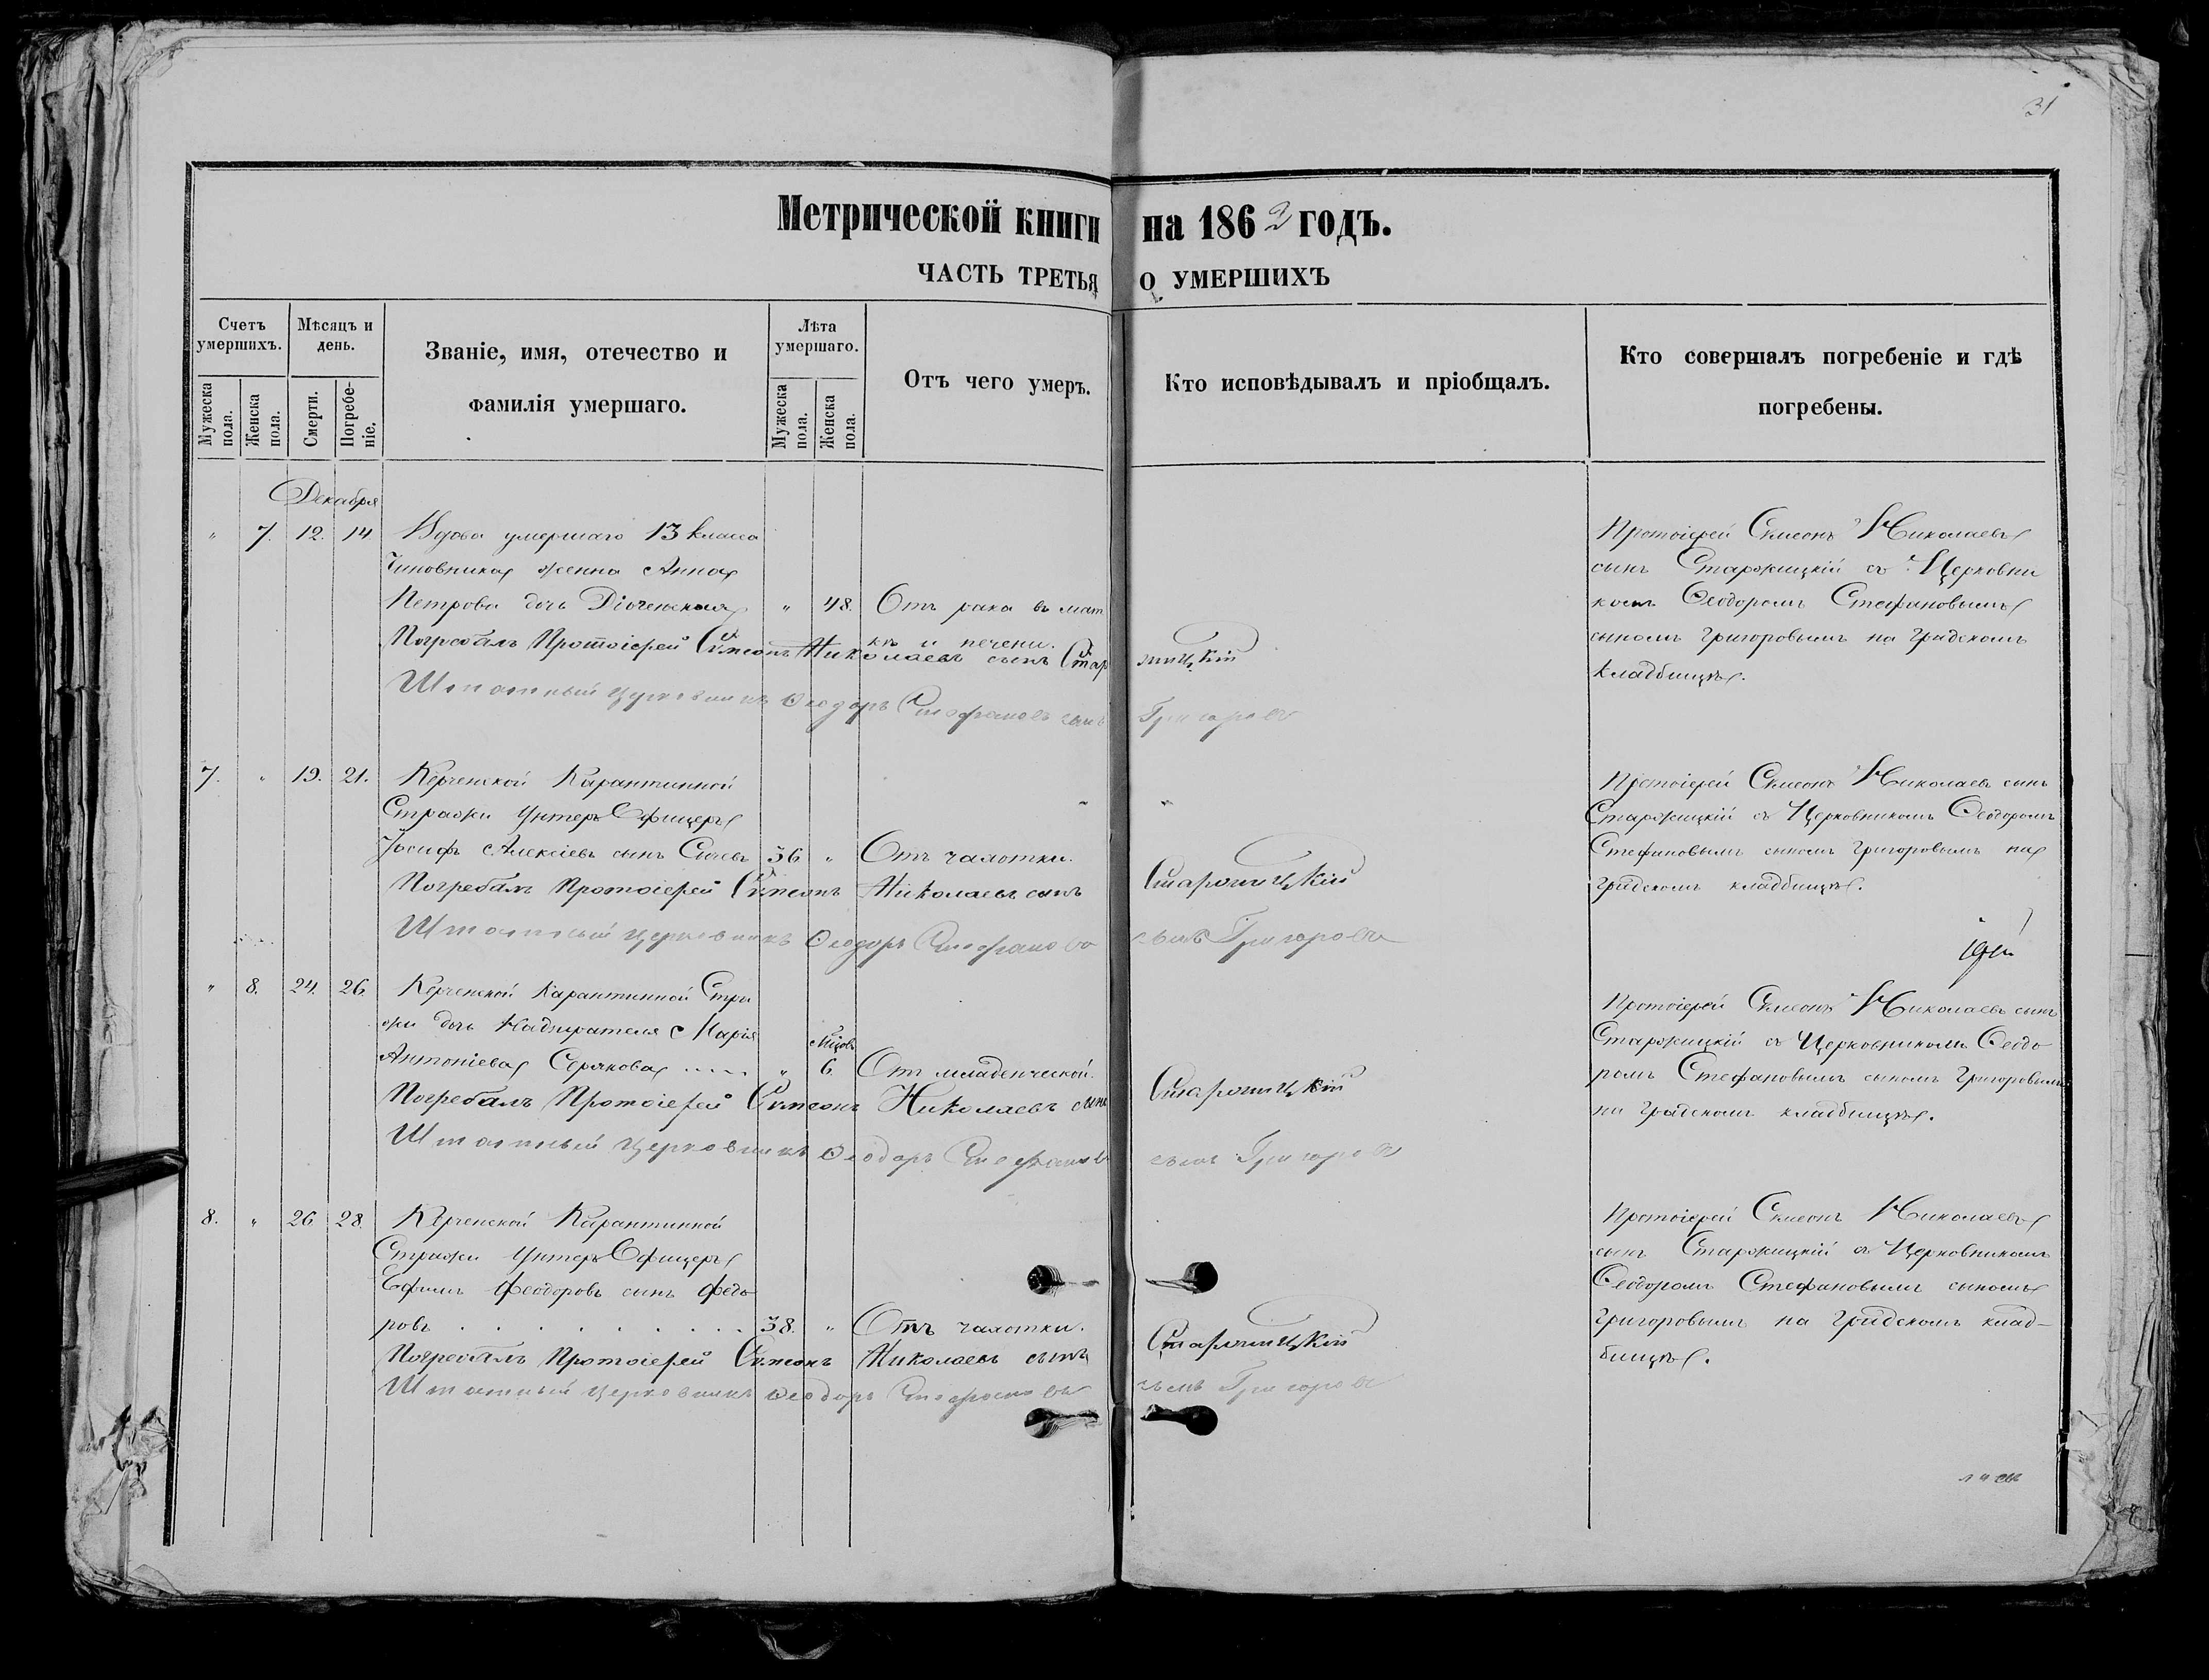 31
Метрической книги на 1862 годъ.
ЧАСТЬ ТРЕТЬЯ О УМЕРШИХЪ
Счетъ умершихъ.
Мѣсяцъ и день.
Званіе, имя, отечество и фамилія умершаго.
Лѣта умершаго.
Отъ чего умеръ.
Кто исповѣдывалъ и пріобщалъ.
Кто совершалъ погребеніе и гдѣ погребены.
Мужеска пола.
Женска пола.
Смерти.
Погребеніе.
Мужеска пола.
Женска пола.
Декабря
" 7. 12. 14
Вдова умершаго 13 класса
Чиновника жена Анна
Петрова дочь
" 48. Отъ рака въ мат
кѣ и печени.
Протоіерей Симеонъ Николаевъ
сынъ Старжицкій съ Церковни
комъ Ѳеодоромъ Стефановымъ
сыномъ Григоровымъ на градскомъ
кладбищѣ.
Погребалъ Протоіерей Симеонъ Николаевъ сынъ Старжицкій
Штатный Церковникъ Ѳеодоръ Стефановъ сынъ Григоровъ
7. " 19. 21.
Керченской Карантинной
Стражи Унтеръ Офицеръ
Іосифъ Алексіевъ сынъ
36 " Отъ чахотки.
Протоіерей Симеонъ Николаевъ сынъ
Старжицкій съ Церковникомъ Ѳеодоромъ
Стефановымъ сыномъ Григоровымъ на
градскомъ кладбищѣ.
Погребалъ Протоіерей Симеонъ Николаевъ сынъ Старжицкій
Штатный Церковникъ Ѳеодоръ Стефановъ сынъ Григоровъ
" 8. 24. 26.
Керченской Карантинной Стра
жи дочь Надзирателя Марія
Антоніева Серякова
" 6. Отъ младенческой.
Протоіерей Симеонъ Николаевъ сынъ
Старжицкій съ Церковникомъ Ѳеодо
ромъ Стефановымъ сыномъ Григоровымъ
на градскомъ кладбищѣ.
Погребалъ Протоіерей Симеонъ Николаевъ сынъ Старжицкій
Штатный Церковникъ Ѳеодоръ Стефановъ сынъ Григоровъ
8. " 26 28.
Керченской Карантинной
Стражи Унтеръ Офицеръ
Ефимъ Феодоровъ сынъ Федо
ровъ . . . . . . . . . . 38. " Отъ чахотки.
Протоіерей Симеонъ Николаевъ
сынъ Старжицкій съ Церковникомъ
Ѳеодоромъ Стефановымъ сыномъ
Григоровымъ на градскомъ клад-
бищѣ.
Погребалъ Протоіерей Симеонъ Николаевъ сынъ Старжицкій
Штатный Церковникъ Ѳеодоръ Стефановъ сынъ Григоровъ